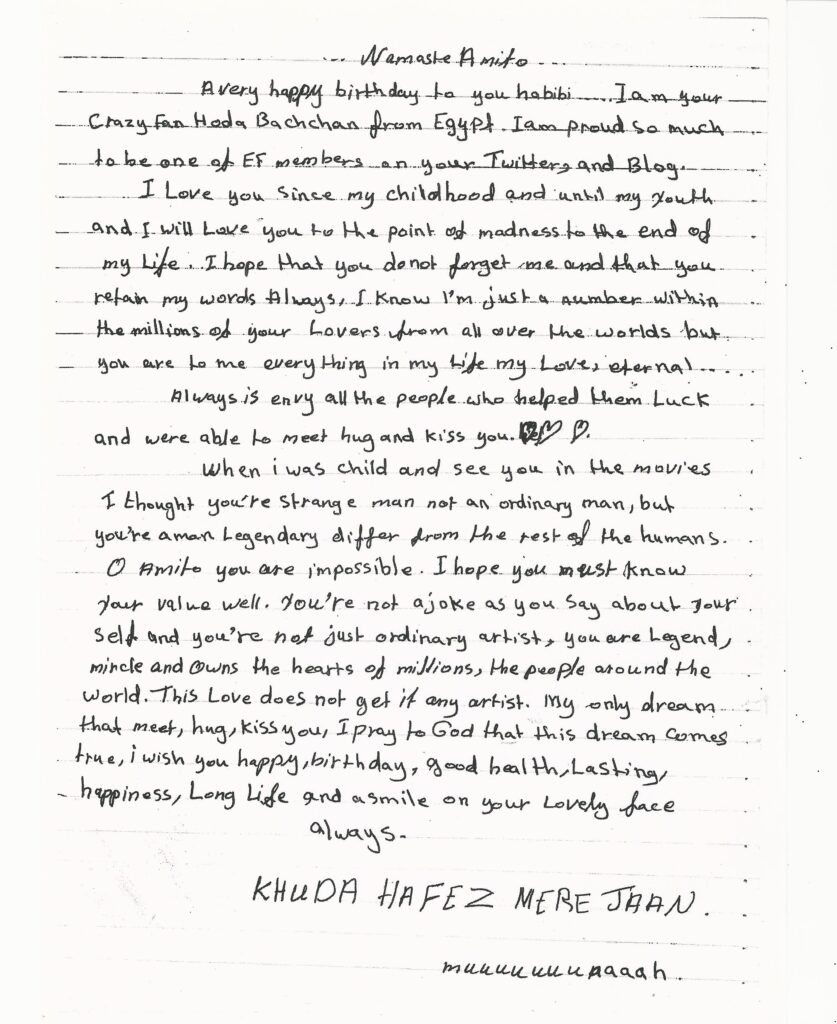 ... Namaste Amito ...
A very happy birthday to you habibi .... I am your
Crazy fan Hoda Bachchan from Egypt. I am proud so much
to be one of EF members on your Twitter, and Blog.
I Love you since my childhood and until my youth
and I will Love you to the point of madness to the end of
my Life. I hope that you do not forget me and that you
retain my words Always, I know I'm just a number within
the millions of your Lovers from all over the worlds but
you are to me everything in my Life my Love, eternal ....
Always is envy all the people who helped them Luck
and were able to meet hug and kiss you. ♡ ♡.
When i was child and see you in the movies
I thought you're strange man not an ordinary man, but
you're a man Legendary differ from the rest of the humans.
O Amito you are impossible. I hope you must know
your value well. You're not a joke as you say about your
self and you're not just ordinary artist, you are Legend,
mircle and owns the hearts of millions, the people around the
world. This Love does not get it any artist. My only dream
that meet, hug, kiss you, I pray to God that this dream comes
true, i wish you happy, birthday, good health, Lasting,
happiness, Long Life and a smile on your Lovely face
always.
KHUDA HAFEZ MERE JAAN.
muuuuuuuaaaah.